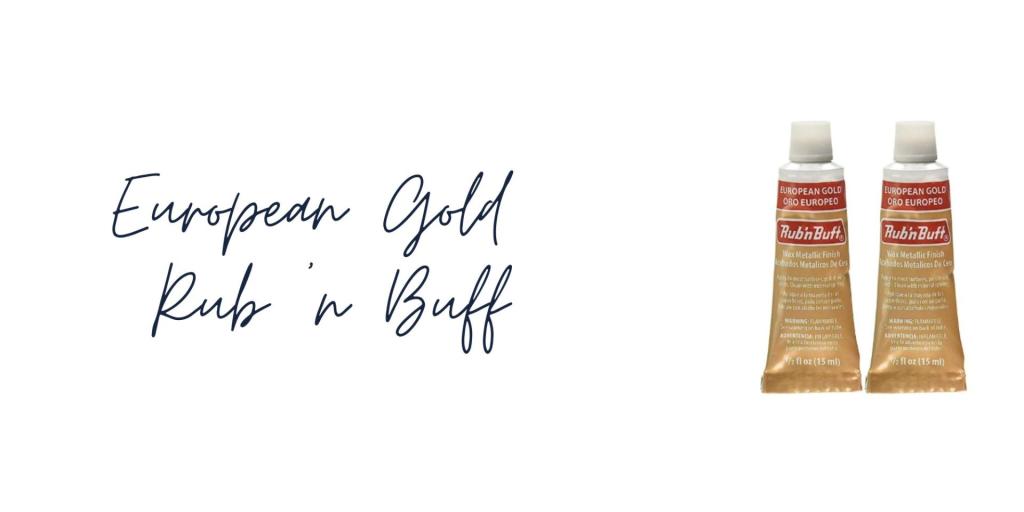 European Gold
Rub 'n Buff
EUROPEAN GOLD
ORO EUROPEO
Rub'n Buff®
Wax Metallic Finish
Acabados Metalicos De Cera
WARNING: FLAMMABLE.
See warning on back of tube.
ADVERTENCIA: INFLAMABLE.
1/2 fl oz (15 ml)
EUROPEAN GOLD
ORO EUROPEO
Rub'n Buff®
Wax Metallic Finish
Acabados Metalicos De Cera
WARNING: FLAMMABLE.
See warning on back of tube.
ADVERTENCIA: INFLAMABLE.
1/2 fl oz (15 ml)